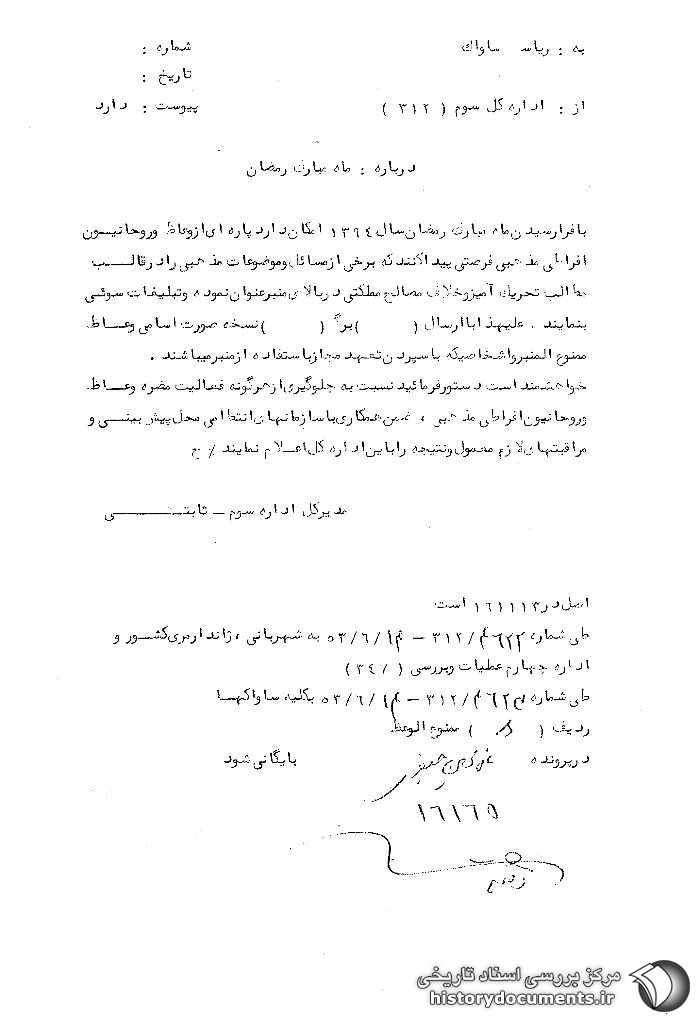 به : ریاست ساواک
شماره :
تاریخ :
از : اداره کل سوم ( ۳۱۲ )
پیوست : دارد
درباره : ماه مبارک رمضان
با فرارسیدن ماه مبارک رمضان سال ۱۳۹٤ امکان دارد پاره ای از وعاظ و روحانیون
افراطی مذهبی فرصتی پیدا کنند که برخی از مسائل و موضوعات مذهبی را در قالب
مطالب تحریک آمیز و خلاف مصالح مملکتی در بالای منبر عنوان نموده و تبلیغات سوئی
بنمایند . علیهذا با ارسال ( ) برگ ( ) نسخه صورت اسامی وعاظ
ممنوع المنبر و اشخاصیکه با سپردن تعهد مجاز باستفاده از منبر میباشند .
خواهشمند است دستور فرمائید نسبت به جلوگیری از هرگونه فعالیت مضره وعاظ
و روحانیون افراطی مذهبی ، ضمن همکاری با سازمانهای انتظامی محل پیش بینی و
مراقبتهای لازم معمول و نتیجه را باین اداره کل اعلام نمایند / ج
مدیرکل اداره سوم – ثابتی
اصل در ۱٦۱۱۱۳ است
طی شماره ۳۱۲/ – ۵۳/٦/ به شهربانی ، ژاندارمری کشور و
اداره چهارم عملیات و بررسی ( ۳٤۱ )
طی شماره ۳۱۲/ – ۵۳/٦/ بکلیه ساواکها
ردیف ( ) ممنوع الوعظ
در پرونده بایگانی شود
۱٦۱٦۵
مرکز بررسی اسناد تاریخی
historydocuments.ir